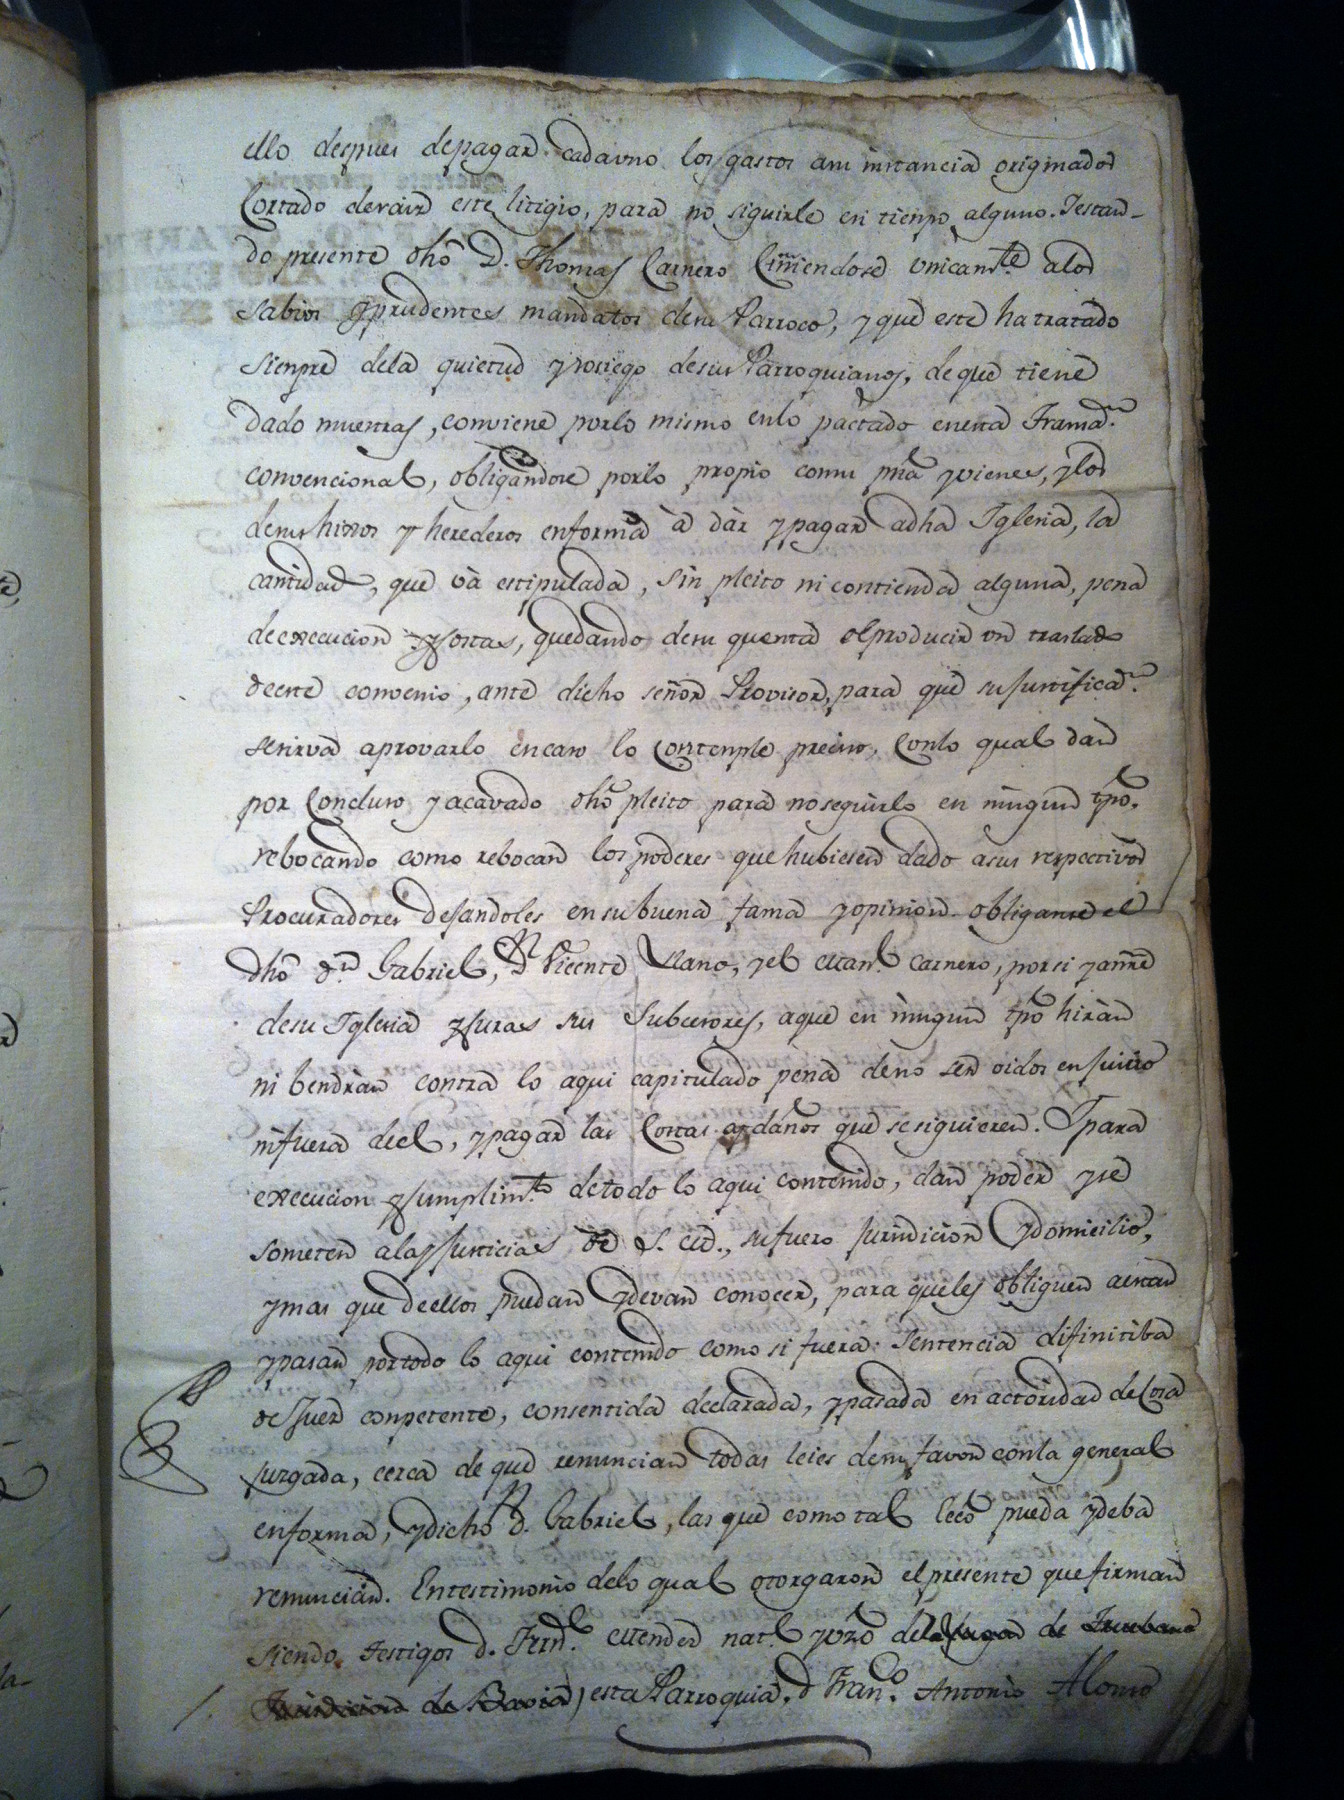 ello despues de pagar cada vno los gastos a su instancia originados
Cortado de raiz este litigio, para no siguirle en tienpo alguno. Y estan-
do presente dho D. Thomas Carnero Ciñiendose vnicamte a los
sabios y prudentes mandatos de su Parroco, y que este ha tratado
sienpre de la quietud y sosiego de sus Parroquianos, de que tiene
dado muestras, conviene por lo mismo en lo pactado en esta
convencional, obligandose por lo propio con su prna y vienes, y los
de sus hixos y herederos en forma à dàr y pagar a dha Iglesia, la
cantidad, que và estipulada, sin pleito ni contienda alguna, pena
de execucion y costas, quedando de su quenta el producir vn traslado
de este convenio, ante dicho señor Provisor, para que su justificaon
se sirva aprovarlo en caso lo contenple preciso, Con lo qual dan
por Concluso y acavado dho pleito para no seguirlo en ningun tpo.
rebocando como rebocan los poderes que hubiesen dado a sus respectivos
Procuradores dejandoles en su buena fama y opinion. obliganse el
dho Dn Gabriel, Dn Vicente Llano, y el Man.l Carnero, por si y anre
de su Iglesia y suras sus Subcesores, a que en ningun tpo hiràn
ni bendràn contra lo aqui capitulado pena de no ser oidos en juicio
ni fuera de el, y pagar las Costas y daños que se siguieren. Y para
execucion y cumplimto de todo lo aqui contenido, dan poder y se
someten a las justicias de S. M., su fuero jurisdicion y domicilio,
y mas que de ellos puedan y devan conocer, para que les obliguen a estar
y pasar por todo lo aqui contenido como si fuera sentencia difinitiba
de Juez conpetente, consentida declarada, y pasada en actoridad de Cosa
juzgada, cerca de que renuncian todas leies de su favor con la general
en forma, y dicho Dn Gabriel, las que como tal Ecco pueda y deba
renunciar. En testimonio de lo qual otorgaron el presente que firman
siendo testigos D. Fern.do Mendez nat.l y vzo de
esta Parroquia, D Fran.co Antonio Alonso